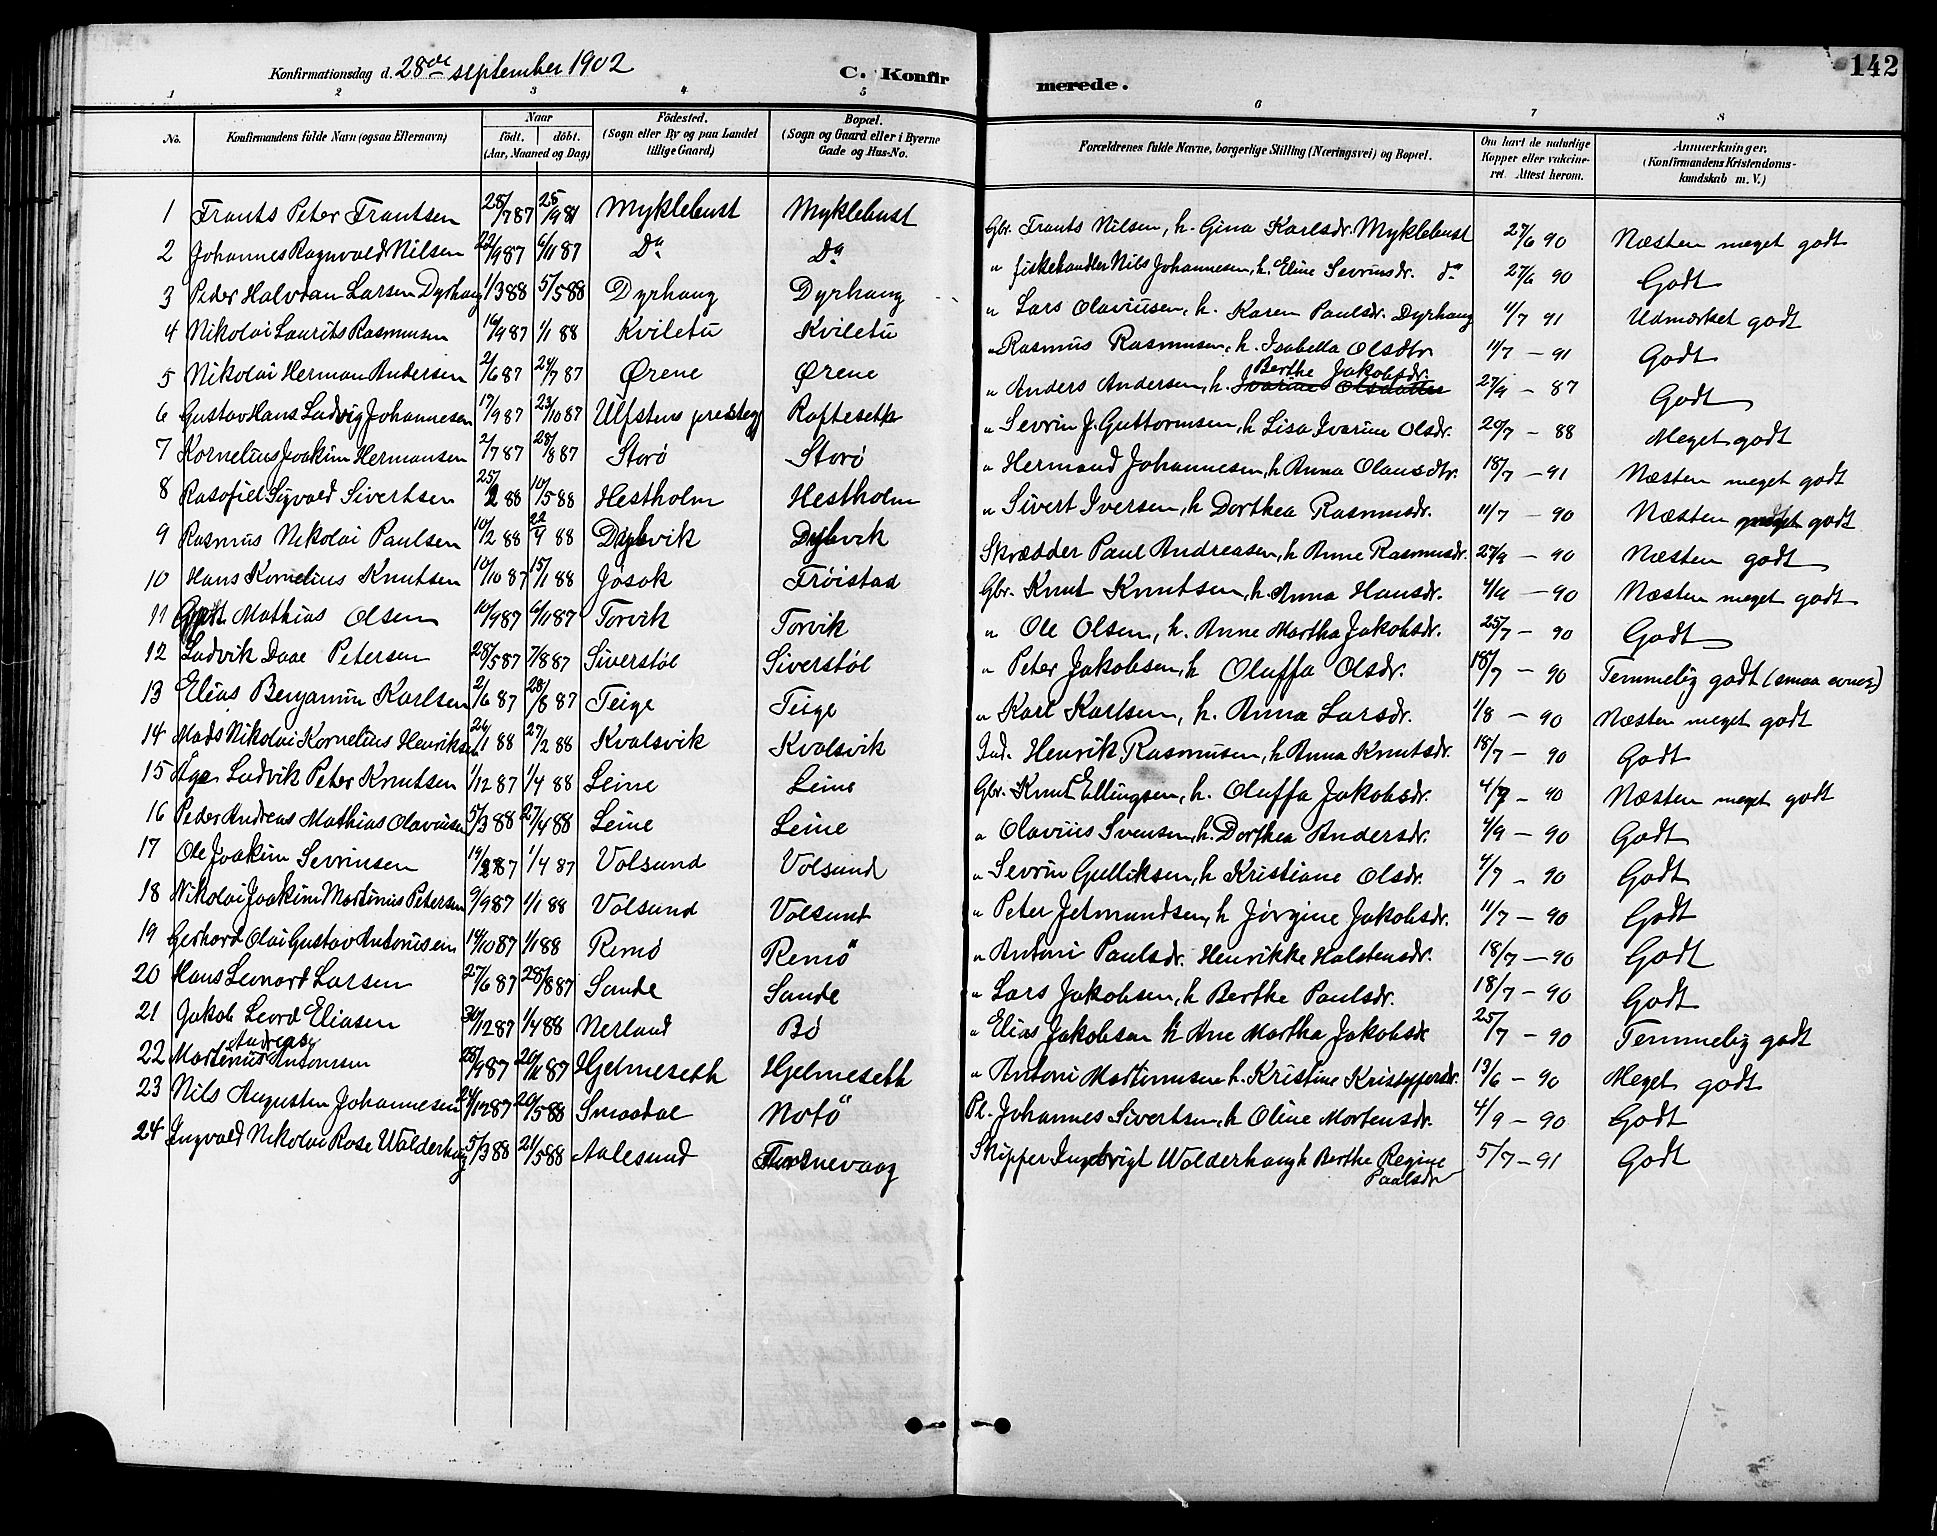 142
Konfirmationsdag d. 28de september 1902
C. Konfirmerede.
1 2 3 4 5 6 7 8
No. Konfirmandens fulde Navn (ogsaa Efternavn) Naar født. døbt. (Aar, Maaned og Dag) Fødested. (Sogn eller By og paa Landet tillige Gaard) Bopæl. (Sogn og Gaard eller i Byerne Gade og Hus-No. Forældrenes fulde Navne, borgerlige Stilling (Næringsvei) og Bopæl. Om havt de naturlige Kopper eller vaksineret. Attest herom. Anmærkninger. (Konfirmandens Kristendomskundskab m. V.)
1 Frants Peter Frantsen 28/7 87 25/9 87 Myklebust Myklebust Gbr. Frants Nilsen, h. Gina Karlsdr. Myklebust 27/6 90 Næsten meget godt
2 Johannes Ragnvald Nilsen 22/9 87 6/11 87 Do Do " fiskehandler Nils Johannesen, h. Eline Sevrinsdr. do 27/6 90 Godt
3 Peder Halvdan Larsen Dyrhaug 1/3 88 5/5 88 Dyrhaug Dyrhaug " Lars Olaviusen, h. Karen Paulsdr. Dyrhaug 11/7 91 Udmærket godt
4 Nikolai Laurits Rasmusen 16/9 87 1/1 88 Kviletu Kviletu " Rasmus Rasmusen, h. Isabella Olsdtr 11/7 - 91 Godt
5 Nikolai Herman Andersen 2/6 87 24/7 87 Ørene Ørene " Anders Andersen, h. Ivarine Olsdatter Berthe Jakobsdr. 27/9 - 87 Godt
6 Gustav Hans Ludvig Johannesen 17/9 87 23/10 87 Ulfstens prestegj Raftesetk " Sevrin J. Guttormsen, h Lisa Ivarine Olsdr. 20/7 - 88 Meget godt
7 Kornelius Joakim Hermansen 2/7 87 28/8 87 Storø Storø " Hermand Johannesen, h Anna Olausdtr. 18/7 - 91 Næsten meget godt
8 Rasofiel Sigvald Sivertsen 25/2 88 10/5 88 Hestholm Hestholm " Sivert Iversen, h Dorthea Rasmusdr. 11/7 - 90 Næsten meget godt
9 Rasmus Nikolai Paulsen 10/2 88 22/9 88 Dybvik Dybvik Skrædder Paul Andreasen, h Anne Rasmusdr. 27/9 - 90 Næsten godt
10 Hans Kornelius Knutsen 10/10 87 15/1 88 Jøsok Frøistad Gbr. Knut Knutsen, h. Anna Hansdr. 4/9 - 90 Næsten meget godt
11 Mathias Olsen 10/9 87 6/11 87 Torvik Torvik " Ole Olsen, h. Anne Martha Jakobsdr. 25/7 - 90 Godt
12 Ludvik Daae Petersen 28/5 87 7/8 87 Siverstøl Siverstøl " Peter Jakobsen, h Oluffa Olsdr. 18/7 - 90 Temmelig godt (smaa evner)
13 Elias Benjamin Karlsen 2/6 87 28/8 87 Teige Teige " Karl Karlsen, h. Anna Larsdr. 1/8 - 90 Næsten meget godt
14 Mads Nikolai Kornelius Henriksen 24/1 88 27/2 88 Kvalsvik Kvalsvik Ind. Henrik Rasmusen, h Anna Knutsdr. 18/7 - 90 Godt
15 Age Ludvik Peter Knutsen 1/12 87 1/4 88 Leine Leine Gbr. Knut Ellingsen, h. Oluffa Jakobsdr. 4/7 - 90 Næsten meget godt
16 Peder Andreas Mathias Olaviusen 5/3 88 27/4 88 Leine Leine " Olavius Svensen, h. Dorthea Andersdr. 4/9 - 90 Godt
17 Ole Joakim Sevrinsen 14/2 87 1/4 87 Volsund Volsund " Sevrin Gulliksen, h Kristiane Olsdr. 4/7 - 90 Godt
18 Nikolai Joakim Martinus Petersen 9/9 87 1/1 88 Volsund Volsund " Peter Jetmundsen, h Jørgine Jakobsdr. 11/7 - 90 Godt
19 Gerhard Olai Gustav Antonisein 14/10 87 1/1 88 Remø Remø " Antoni Paulsdr. Henrikke Halstensdr. 18/7 - 90 Godt
20 Hans Leonard Larsen 27/6 87 28/8 87 Sande Sande " Lars Jakobsen, h Berthe Paulsdr. 18/7 - 90 Godt
21 Jakob Leord Eliasen 30/12 87 1/4 88 Nerland Bø " Elias Jakobsen h Ane Martha Jakobsdr 25/7 - 90 Temmelig godt
22 Martinus Andreas Antonisen 25/9 87 20/11 87 Hjelmeseth Hjelmeseth " Antoni Martinusen h. Kristine Kristoffersdr. 13/6 - 90 Meget godt
23 Nils Augustin Johannesen 24/12 87 20/5 88 Smaadal Notø Pl. Johannes Sivertsen, h Oline Mortensdr. 4/9 - 90 Godt
24 Ingvald Nikolai Rose Walderhaug 5/3 88 21/5 88 Aalesund Fosnevaag Skipper Ingebrigt Wolderhaug h Berthe Regine Paulsdr 5/7 - 91 Godt